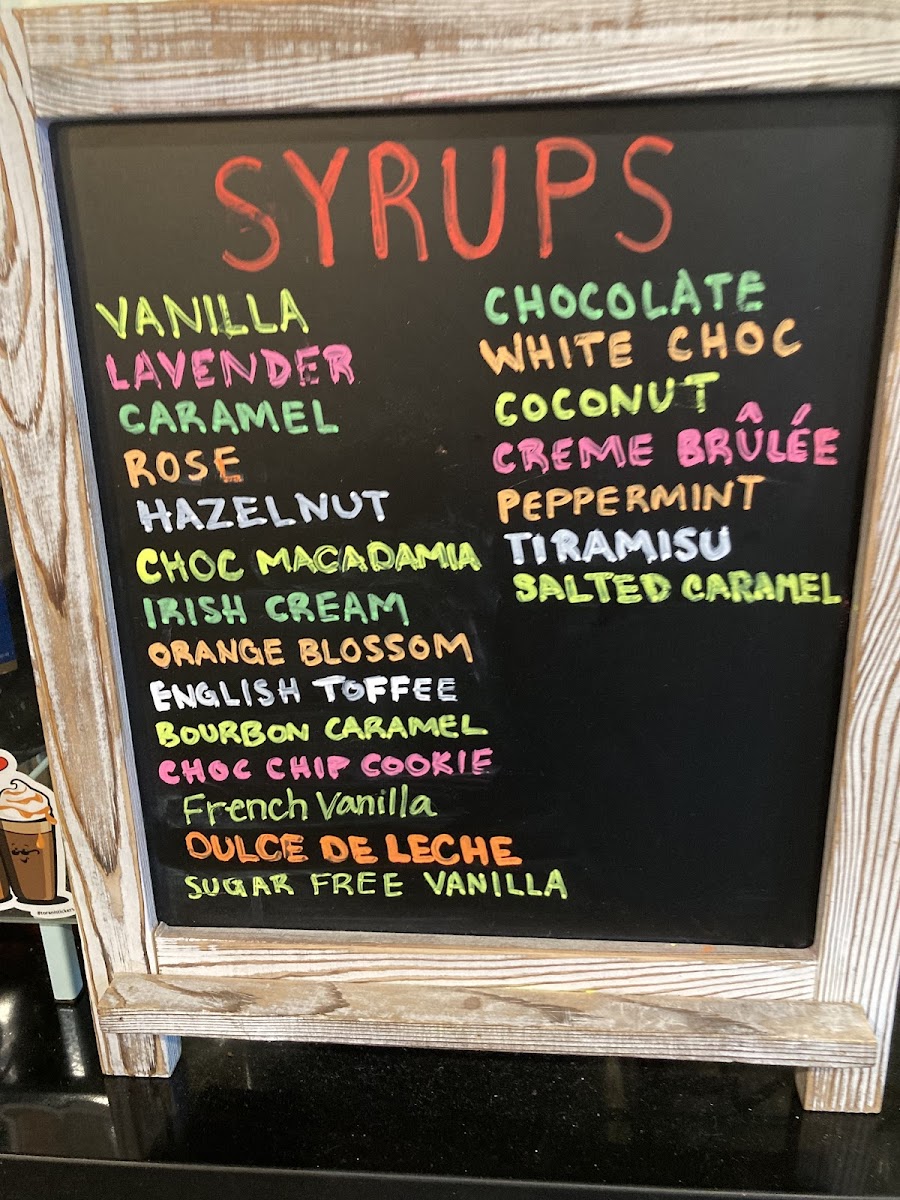 SYRUPS
VANILLA
LAVENDER
CARAMEL
ROSE
HAZELNUT
CHOC MACADAMIA
IRISH CREAM
ORANGE BLOSSOM
ENGLISH TOFFEE
BOURBON CARAMEL
CHOC CHIP COOKIE
French Vanilla
DULCE DE LECHE
SUGAR FREE VANILLA
CHOCOLATE
WHITE CHOC
COCONUT
CREME BRÛLÉE
PEPPERMINT
TIRAMISU
SALTED CARAMEL